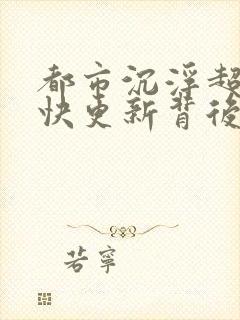 都市沉浮超
快更新背後
若寧